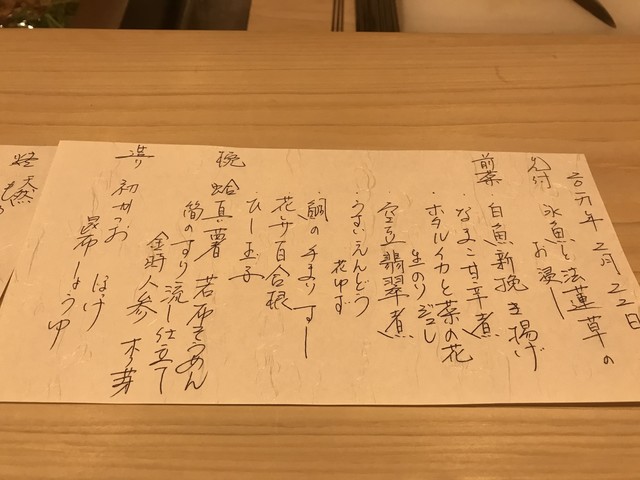 二〇一九年 二月 二二日
先付 氷魚と法蓮草の
お浸し
前菜 ・白魚新挽き揚げ
・なまこ甘辛煮
・ホタルイカと菜の花
生のりジュレ
・空豆翡翠煮
・うすいえんどう
花ゆず
・鯛の手まりすし
・花弁百合根
・ひし玉子
椀 蛤真薯 若布そうめん
筍のすり流し仕立て
金時人参 木の芽
造り 初がつお ほっけ
昆布しょうゆ
天然